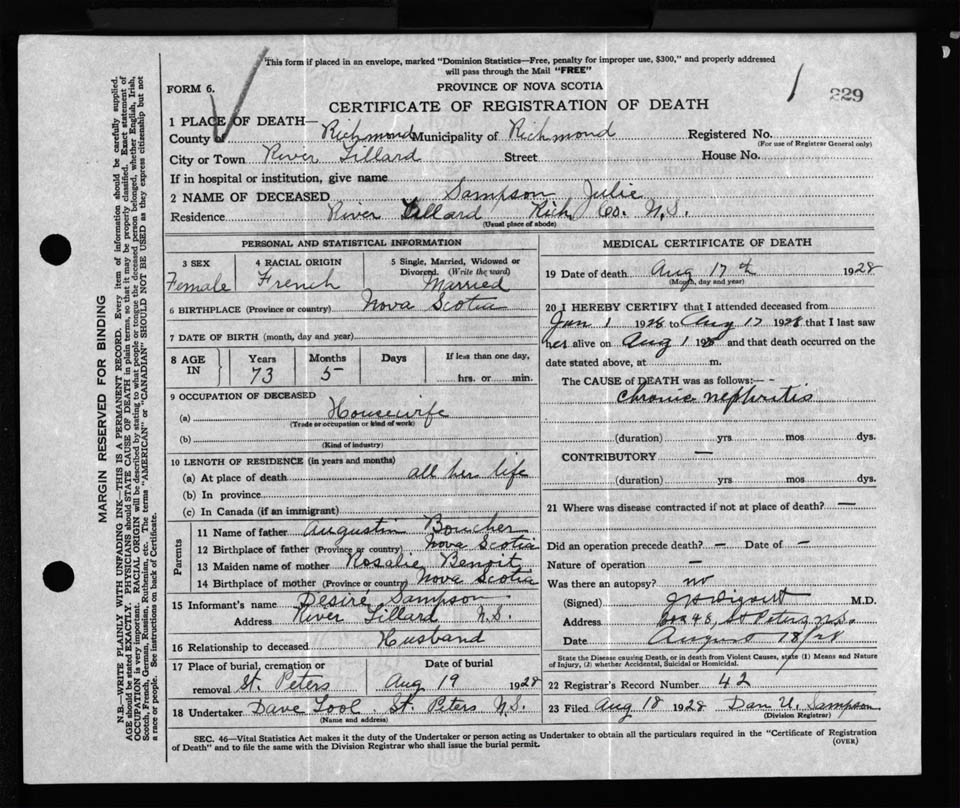 This form if placed in an envelope, marked "Dominion Statistics—Free, penalty for improper use, $300," and properly addressed
will pass through the Mail "FREE"
FORM 6.
PROVINCE OF NOVA SCOTIA
1 229
CERTIFICATE OF REGISTRATION OF DEATH
1 PLACE OF DEATH—
County of Richmond Municipality of Richmond Registered No.
(For use of Registrar General only)
City or Town River Tillard Street House No.
If in hospital or institution, give name
2 NAME OF DECEASED Sampson Julie
Residence River Tillard Rich Co. N.S.
(Usual place of abode)
PERSONAL AND STATISTICAL INFORMATION
3 SEX 4 RACIAL ORIGIN 5 Single, Married, Widowed or
Divorced. (Write the word)
Female French Married
6 BIRTHPLACE (Province or country) Nova Scotia
7 DATE OF BIRTH (month, day and year)
8 AGE IN Years Months Days If less than one day,
73 5 hrs. or min.
9 OCCUPATION OF DECEASED
(a) Housewife
(Trade or occupation or kind of work)
(b)
(Kind of industry)
10 LENGTH OF RESIDENCE (in years and months)
(a) At place of death all her life
(b) In province
(c) In Canada (if an immigrant)
Parents
11 Name of father Augustin Boucher
12 Birthplace of father (Province or country) Nova Scotia
13 Maiden name of mother Rosalie Benoit
14 Birthplace of mother (Province or country) Nova Scotia
15 Informant's name Desiré Sampson
Address River Tillard N.S.
16 Relationship to deceased Husband
17 Place of burial, cremation or Date of burial
removal St. Peters Aug 19 1928
18 Undertaker Dave Pool St. Peters N.S.
(Name and address)
MEDICAL CERTIFICATE OF DEATH
19 Date of death Aug 17th 1928
(Month, day and year)
20 I HEREBY CERTIFY that I attended deceased from
Jun 1 1928 to Aug 17 1928 that I last saw
her alive on Aug 1 1928 and that death occurred on the
date stated above, at m.
The CAUSE of DEATH was as follows:—
Chronic nephritis
(duration) yrs mos dys.
CONTRIBUTORY —
(duration) yrs mos dys.
21 Where was disease contracted if not at place of death? —
Did an operation precede death? – Date of –
Nature of operation –
Was there an autopsy? no
(Signed) M.D.
Address Box 48, St Peters N.S.
Date August 18/28
State the Disease causing Death, or in death from Violent Causes, state (1) Means and Nature
of Injury, (2) whether Accidental, Suicidal or Homicidal.
22 Registrar's Record Number 42
23 Filed Aug 18 1928 Dan U. Sampson
(Division Registrar)
SEC. 46—Vital Statistics Act makes it the duty of the Undertaker or person acting as Undertaker to obtain all the particulars required in the "Certificate of Registration
of Death" and to file the same with the Division Registrar who shall issue the burial permit.
(OVER)
MARGIN RESERVED FOR BINDING
N.B.—WRITE PLAINLY WITH UNFADING INK—THIS IS A PERMANENT RECORD. Every item of information should be carefully supplied.
AGE should be stated EXACTLY. PHYSICIANS should STATE CAUSE OF DEATH in plain terms, so that it may be properly classified. Exact statement of
OCCUPATION is very important. RACIAL ORIGIN will be described by stating to what people or tongue the deceased person belonged, whether English, Irish,
Scotch, French, German, Russian, Ruthenian, etc. The terms "AMERICAN" or "CANADIAN" SHOULD NOT BE USED as they express citizenship but not
a race or people. See instructions on back of Certificate.